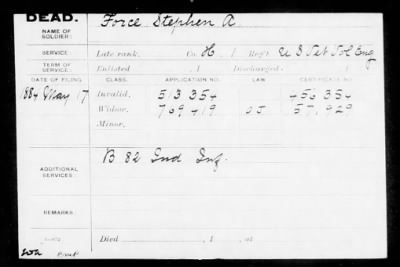 DEAD.
NAME OF SOLDIER: Force Stephen A
SERVICE: Late rank, Co. H, 1 Reg't U S Vet Vol Eng
TERM OF SERVICE: Enlisted 1 Discharged 1
DATE OF FILING. CLASS. APPLICATION NO. LAW. CERTIFICATE NO.
1884 May 17 Invalid, 513354 456354
Widow, 709419 57,929
Minor,
ADDITIONAL SERVICES: B 82 Ind Inf.
REMARKS:
Died , 1 , at